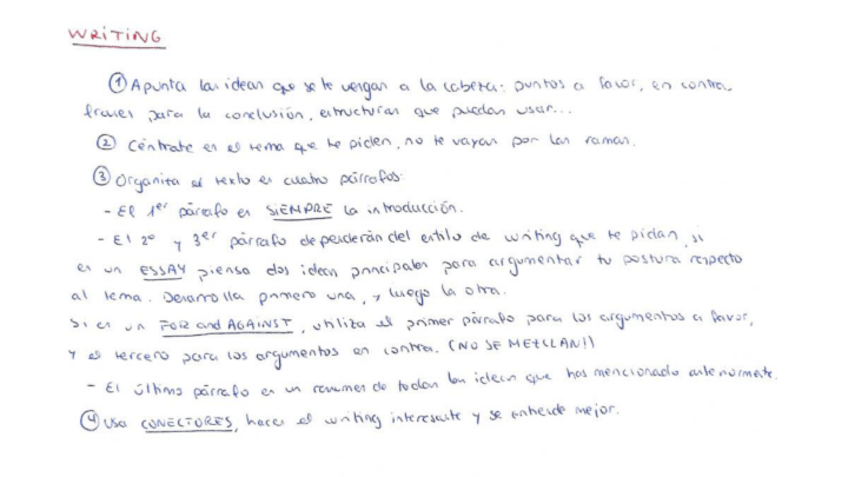 WRITING
① Apunta las ideas que se te vengan a la cabeza: puntos a favor, en contra,
frases para la conclusión, estructuras que puedas usar...
② Céntrate en el tema que te piden, no te vayas por las ramas.
③ Organiza el texto en cuatro párrafos:
- El 1er párrafo es SIEMPRE la introducción.
- El 2º y 3er párrafo dependerán del estilo de writing que te pidan, si
es un ESSAY piensa dos ideas principales para argumentar tu postura respecto
al tema. Desarrolla primero una, y luego la otra.
Si es un FOR and AGAINST, utiliza el primer párrafo para los argumentos a favor,
y el tercero para los argumentos en contra. (NO SE MEZCLAN!)
- El último párrafo es un resumen de todas las ideas que has mencionado anteriormente.
④ Usa CONECTORES, hacen el writing interesante y se entiende mejor.